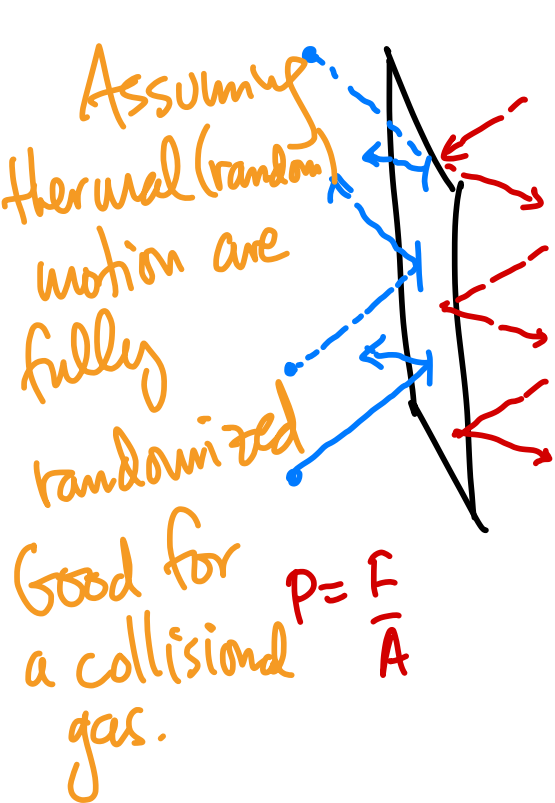 Assuming
thermal (random)
motion are
fully
randomized
Good for
a collisional
gas.
P = F/A